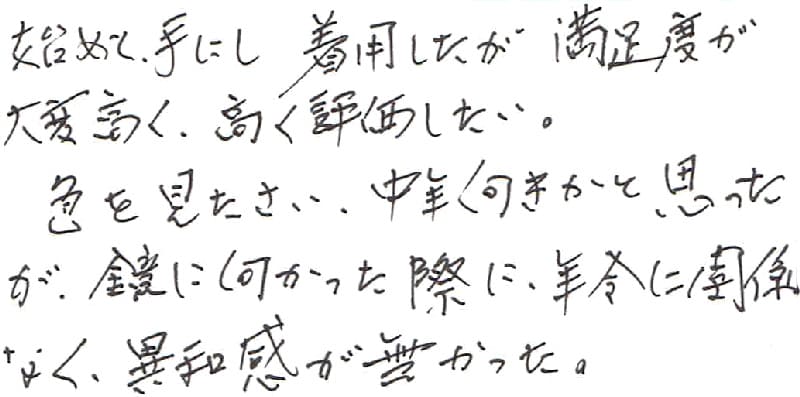 始めて、手にし 着用したが 満足度が
大変高く、高く評価したい。
色を見たさい、中年向きかと思った
が、鏡に向かった際に、年令に関係
なく、異和感が無かった。